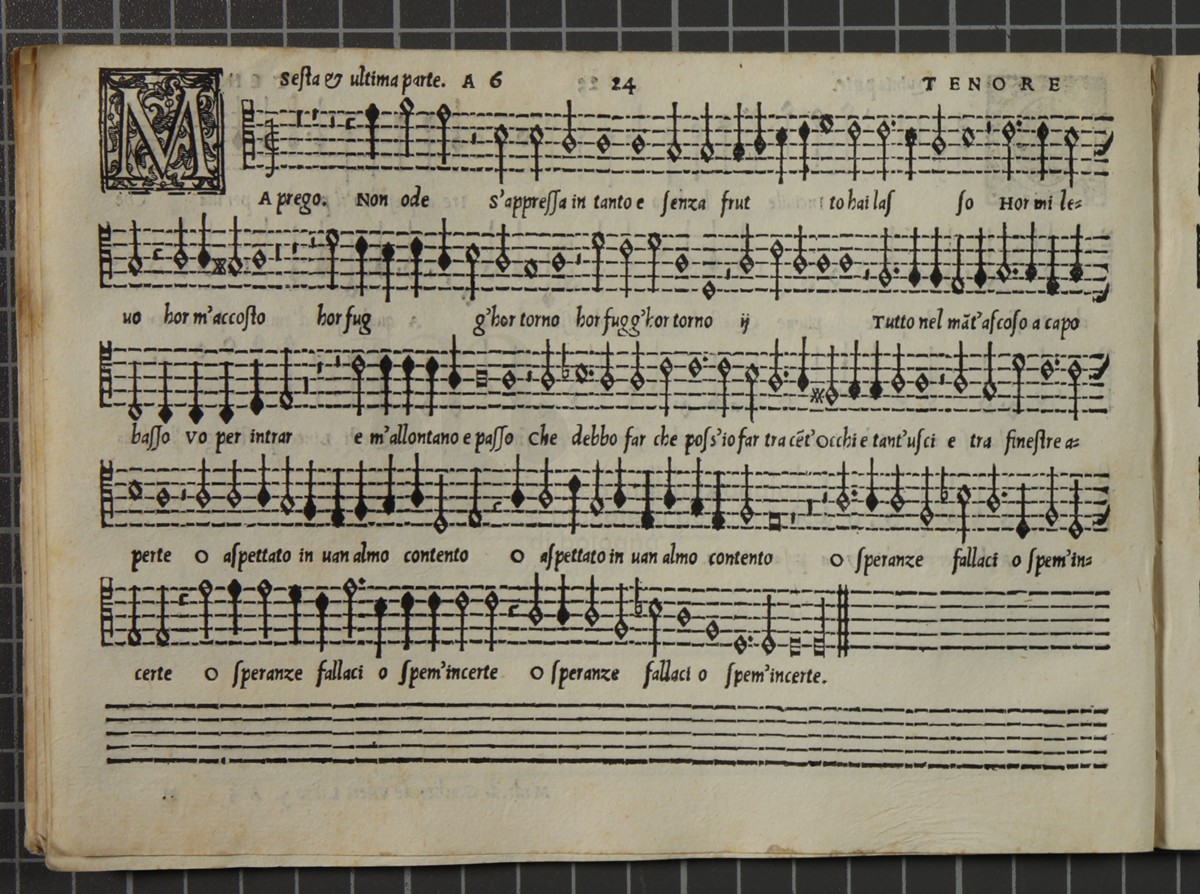 Sesta & ultima parte. A 6 24 TENORE
MA prego. Non ode S'appressa in tanto e senza frut to hai las so Hor mi le=
uo hor m'accosto hor fug g'hor torno hor fugg'hor torno ij Tutto nel mãt'ascoso a capo
basso vo per intrar e m'allontano e passo Che debbo far che poss'io far tra cẽt'Occhi e tant'usci e tra finestre a=
perte O aspettato in uan almo contento O aspettato in uan almo contento O speranze fallaci o spem'in=
certe O speranze fallaci o spem'incerte O speranze fallaci o spem'incerte.